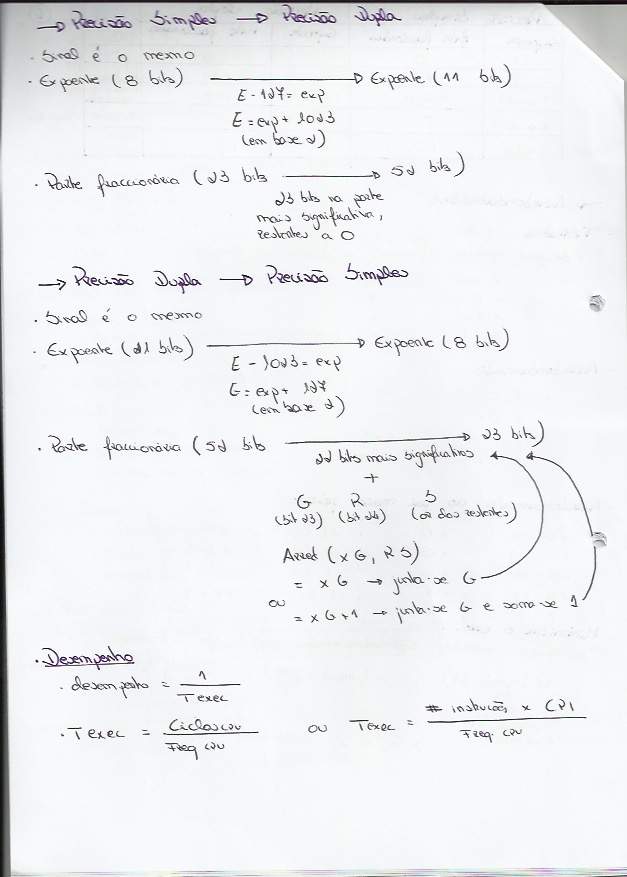 → Precisão Simples → Precisão Dupla
· Sinal é o mesmo
· Expoente (8 bits) → Expoente (11 bits)
E - 127 = exp
E = exp + 1023
(em base 2)
· Parte fraccionária (23 bits → 52 bits)
23 bits na parte
mais significativa,
restantes a 0
→ Precisão Dupla → Precisão Simples
· Sinal é o mesmo
· Expoente (21 bits) → Expoente (8 bits)
E - 1023 = exp
E = exp + 127
(em base 2)
· Parte fraccionária (52 bits → 23 bits)
22 bits mais significativos
+
G R S
(bit 23) (bit 24) (or dos restantes)
Arred (x G, R S)
= x G → junta-se G
ou
= x G + 1 → junta-se G e soma-se 1
· Desempenho
· desempenho = 1 / T exec
· T exec = Ciclos CPU / Freq CPU ou T exec = # instruções x CPI / Freq. CPU